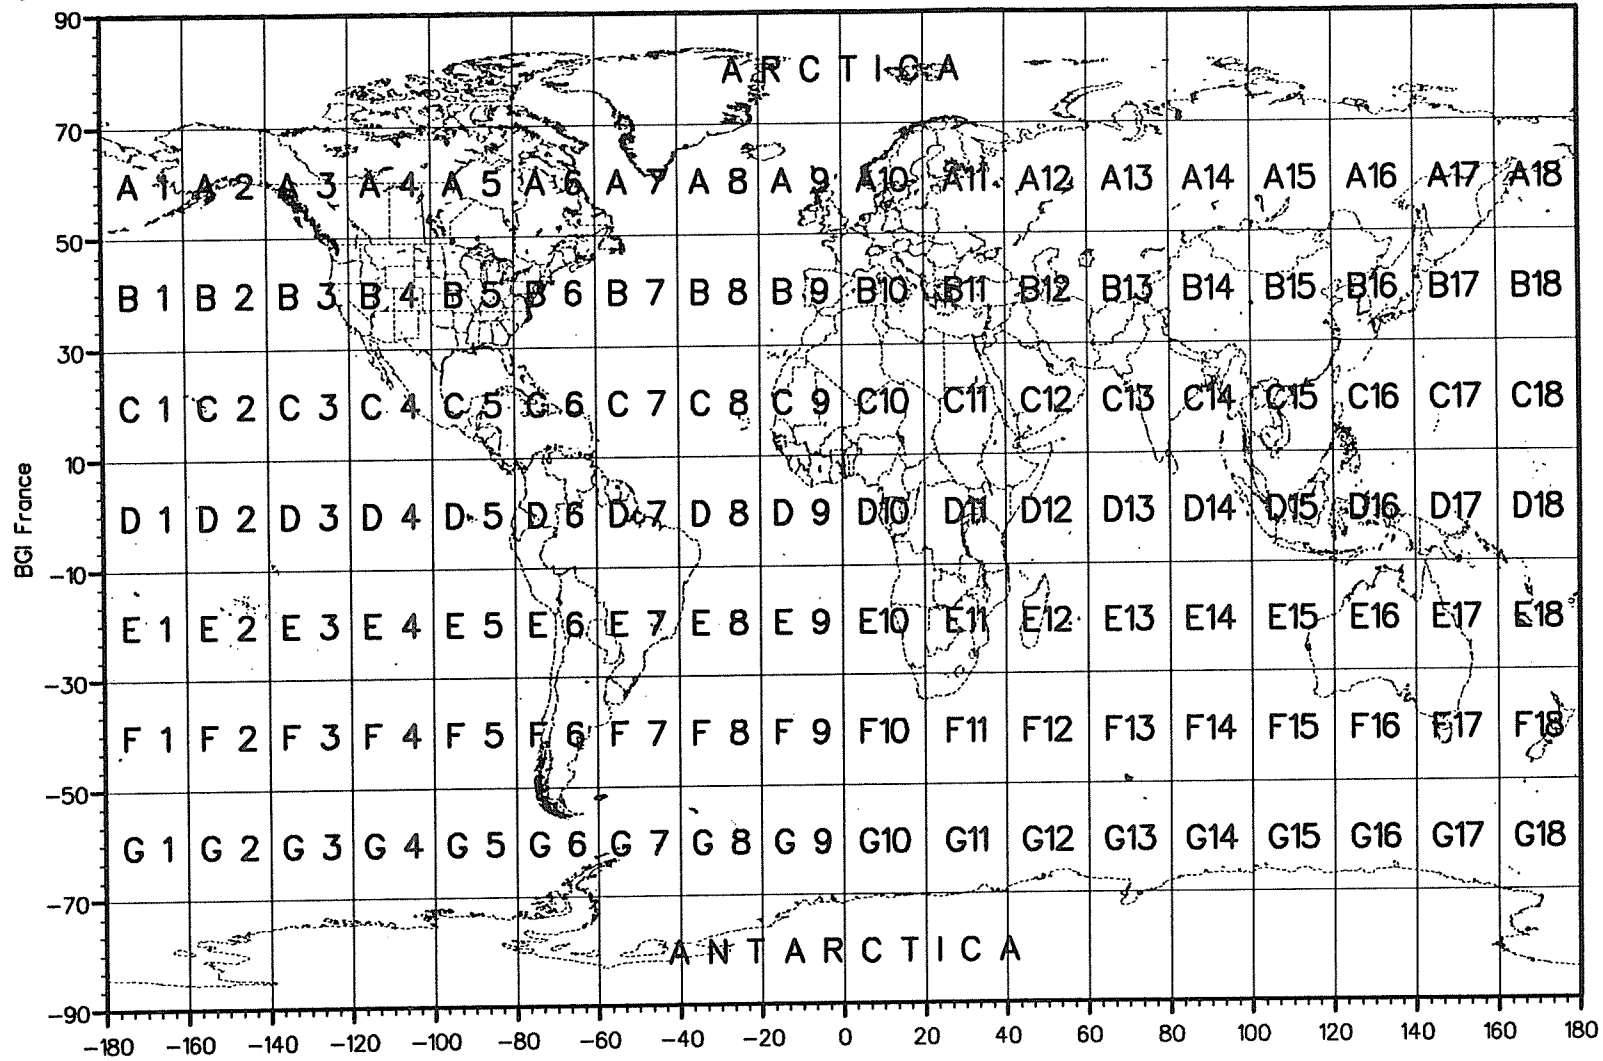 90
ARCTICA
70
A 1 A 2 A 3 A 4 A 5 A 6 A 7 A 8 A 9 A10 A11 A12 A13 A14 A15 A16 A17 A18
50
B 1 B 2 B 3 B 4 B 5 B 6 B 7 B 8 B 9 B10 B11 B12 B13 B14 B15 B16 B17 B18
30
C 1 C 2 C 3 C 4 C 5 C 6 C 7 C 8 C 9 C10 C11 C12 C13 C14 C15 C16 C17 C18
10
BGI France
D 1 D 2 D 3 D 4 D 5 D 6 D 7 D 8 D 9 D10 D11 D12 D13 D14 D15 D16 D17 D18
-10
E 1 E 2 E 3 E 4 E 5 E 6 E 7 E 8 E 9 E10 E11 E12 E13 E14 E15 E16 E17 E18
-30
F 1 F 2 F 3 F 4 F 5 F 6 F 7 F 8 F 9 F10 F11 F12 F13 F14 F15 F16 F17 F18
-50
G 1 G 2 G 3 G 4 G 5 G 6 G 7 G 8 G 9 G10 G11 G12 G13 G14 G15 G16 G17 G18
-70
ANTARCTICA
-90
-180 -160 -140 -120 -100 -80 -60 -40 -20 0 20 40 60 80 100 120 140 160 180